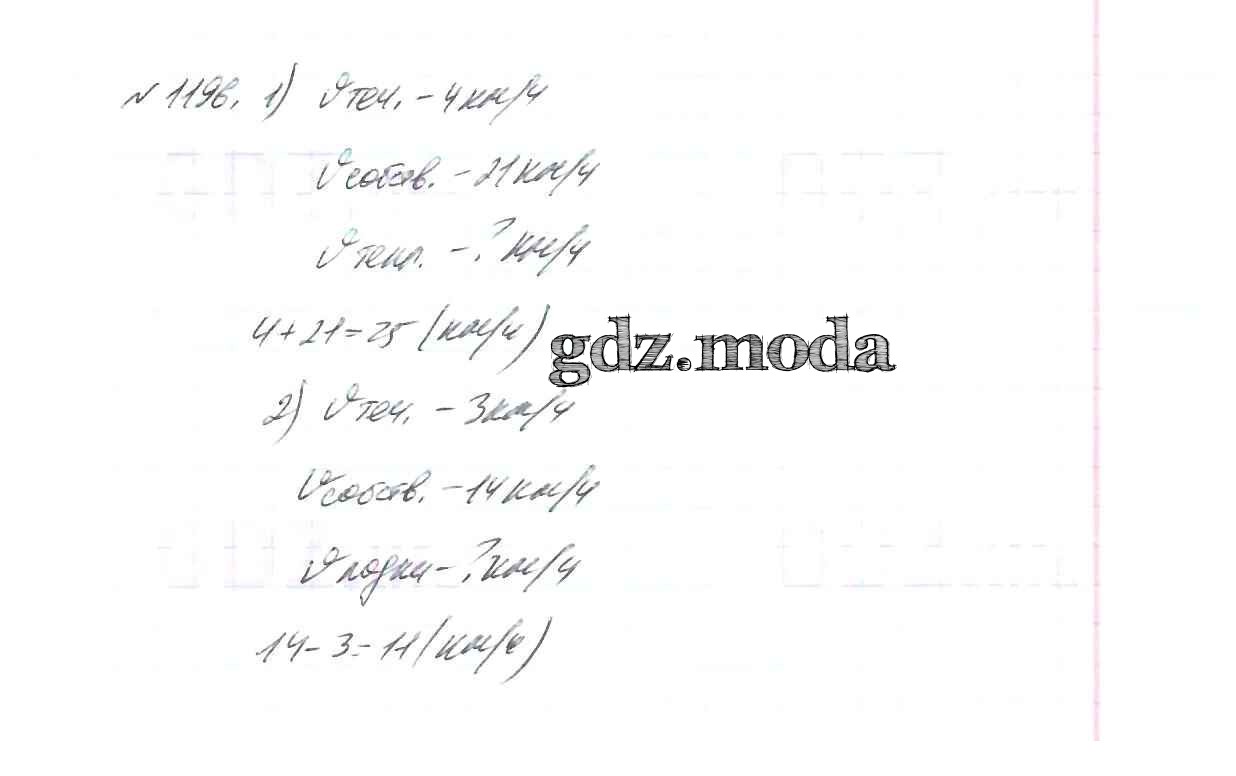 № 1196. 1) υтеч. - 4 км/ч
υсобств. - 21 км/ч
υтепл. - ? км/ч
4 + 21 = 25 (км/ч)
gdz.moda
2) υтеч. - 3 км/ч
υсобств. - 14 км/ч
υлодки - ? км/ч
14 - 3 = 11 (км/ч)